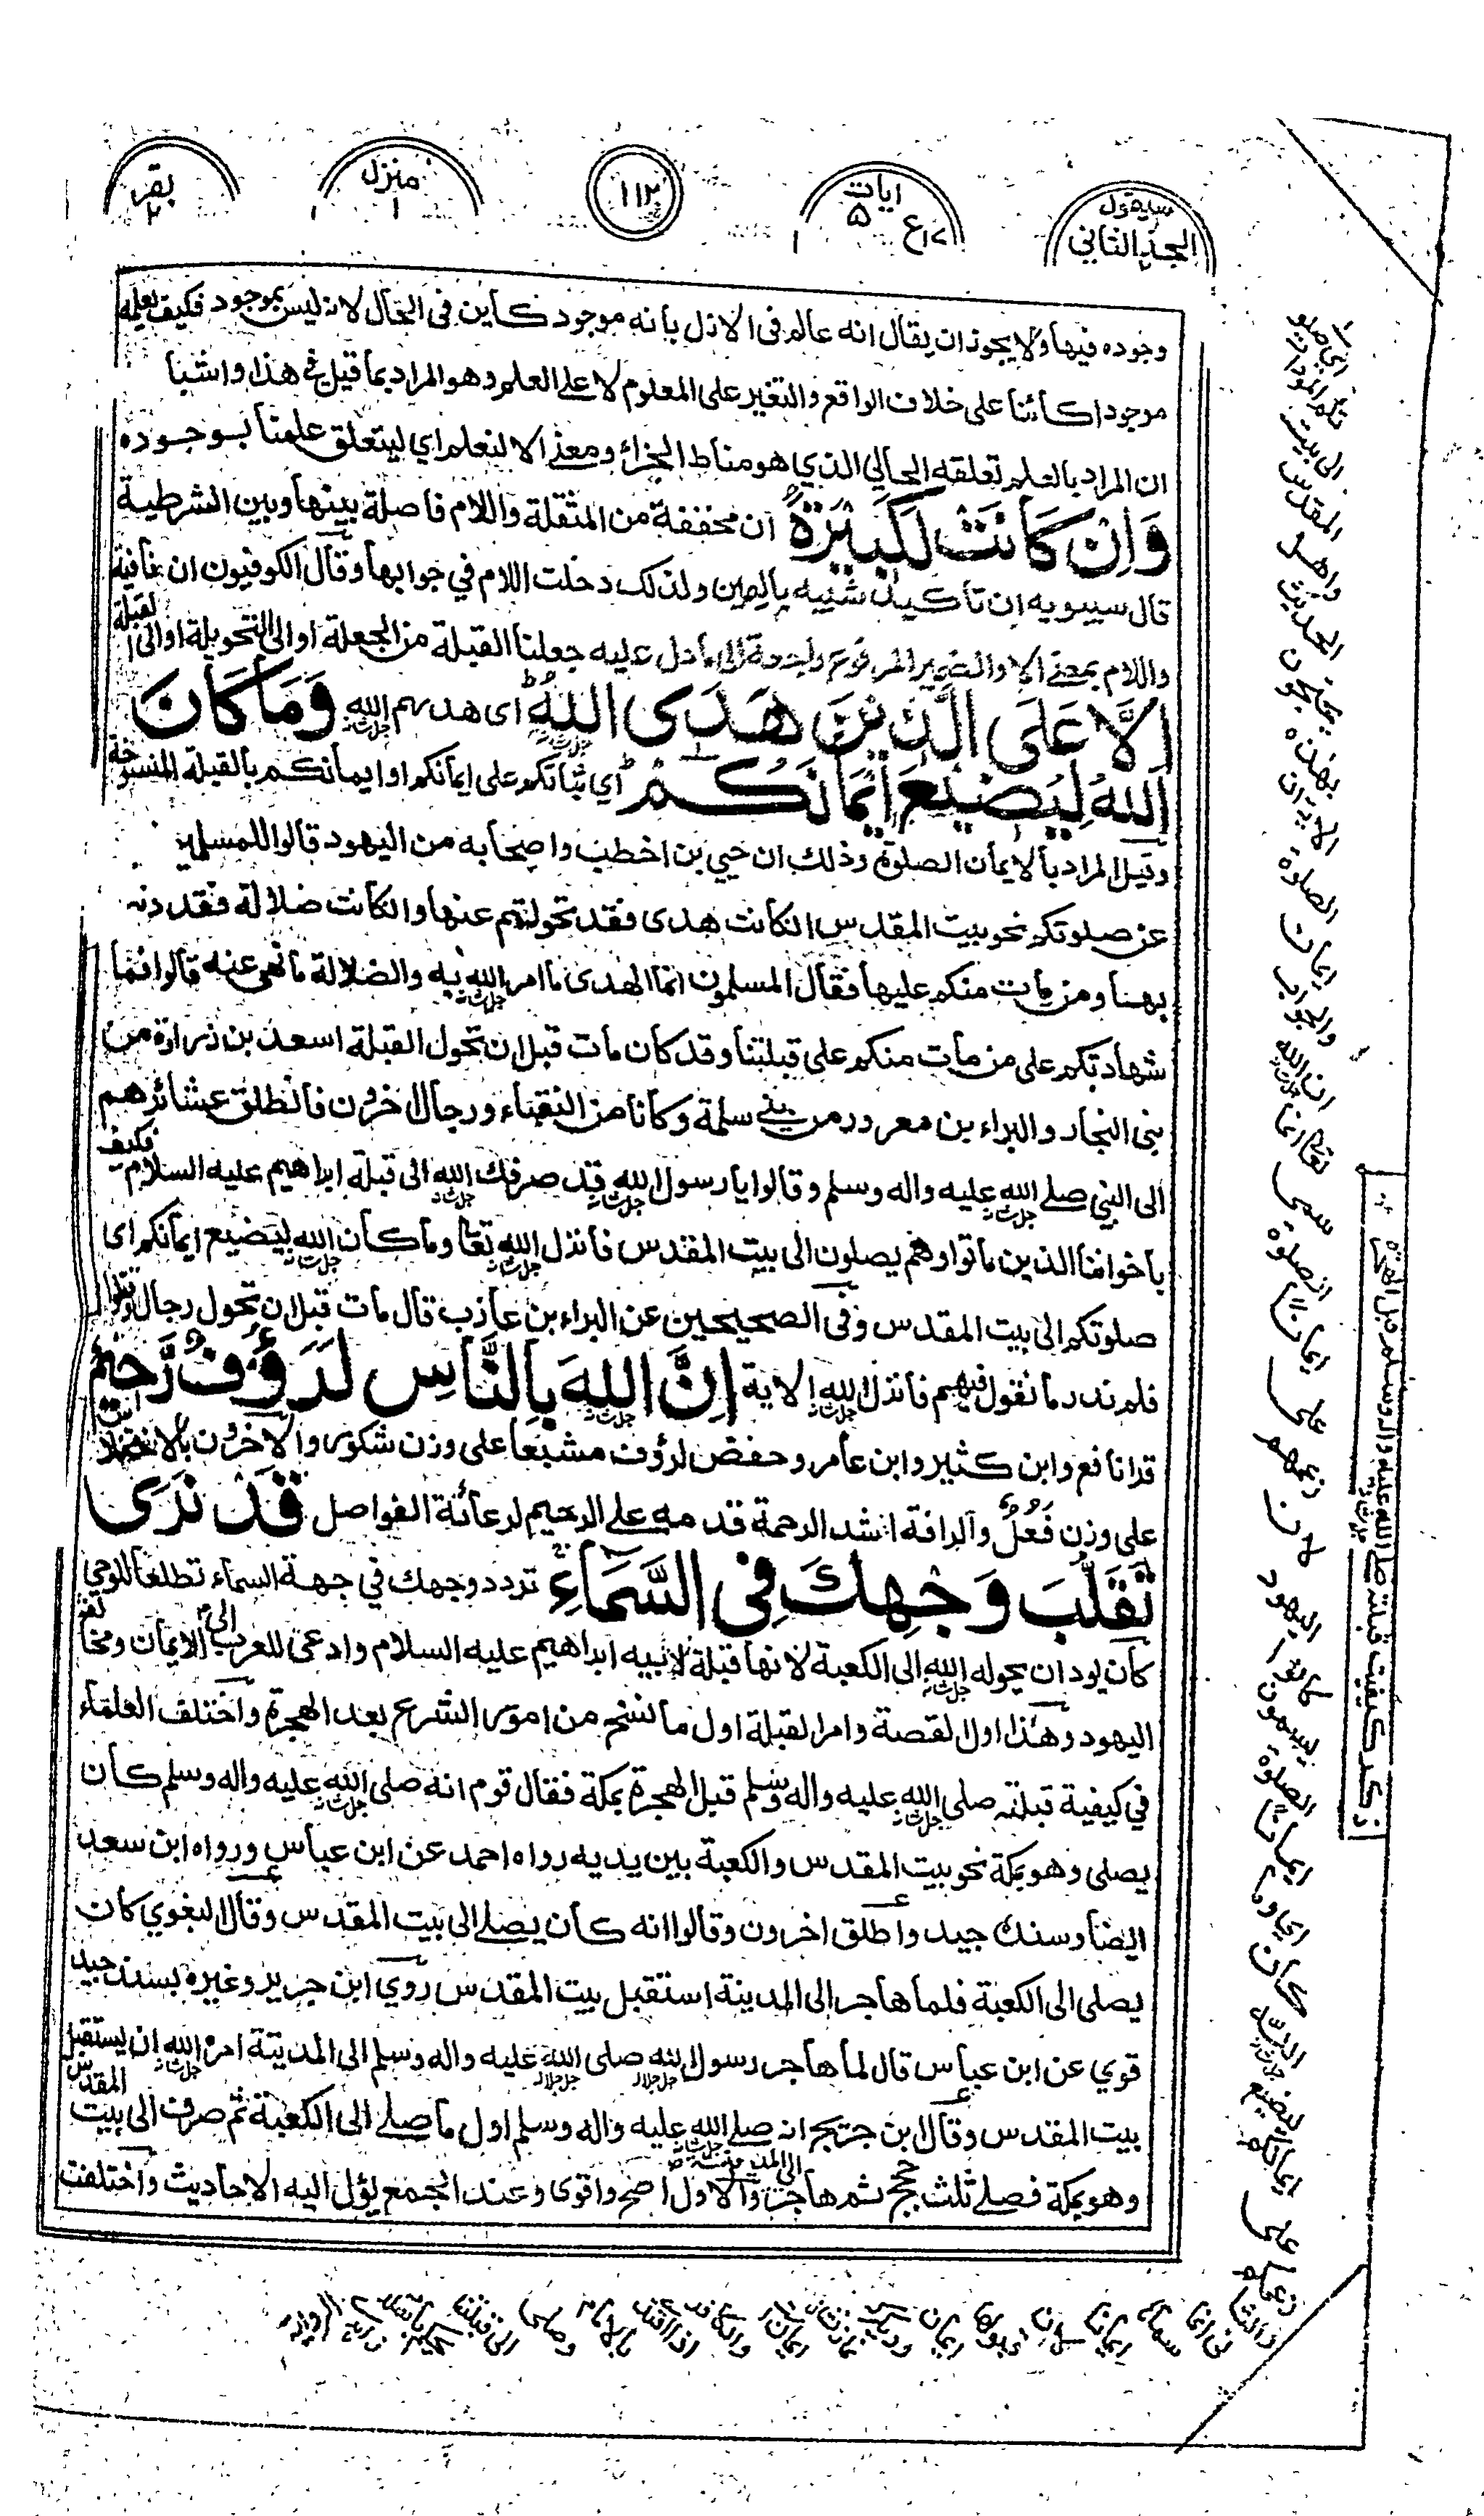 سيقول
الجزء الثاني
ايات
۵
ع۱۷
۱۱۳
منزل
۱
بقرہ
۲
وجوده فيها ولا يجوز ان يقال انه عالم فى الازل بانه موجود كاين فى الحال لانه ليس بموجود فكيف يعلمه
موجودا كائنا على خلاف الواقع والتغير على المعلوم لا على العلم وهو المراد بما قيل فى هذا واشبا
ان المراد بالعلم تعلقه الحالي الذي هو مناط الجزاء ومعنى الا لنعلم اي ليتعلق علمنا بوجوده
وَاِنْ كَانَتْ لَكَبِيْرَةً ان مخففة من المثقلة واللام فاصلة بينها وبين الشرطية
قال سيبويه ان تاكيد شبيه باليمين ولذلك دخلت اللام في جوابها وقال الكوفيون ان نافية
واللام بمعنى الا والضمير المرفوع راجعة الى مادل عليه جعلنا القبلة من الجعلة او الى التحويلة او الى القبلة
اِلَّا عَلَى الَّذِيْنَ هَدَى اللهُ اى هدىهم الله وَمَا كَانَ
اللهُ لِيُضِيْعَ اِيْمَانَكُمْ اي ثباتكم على ايمانكم او ايمانكم بالقبلة المنسوخة
وقيل المراد بالايمان الصلوة وذلك ان حيي بن اخطب واصحابه من اليهود قالوا للمسلمين
عن صلوتكم نحو بيت المقدس انكانت هدى فقد تحولتم عنها وانكانت ضلالة فقد دنتم
بهنا ومن مات منكم عليها فقال المسلمون انما الهدى ما امر الله به والضلالة ما نهى عنه قالوا فما
شهادتكم على من مات منكم على قبلتنا وقد كان مات قبل ان تحول القبلة اسعد بن زرارة من
بنى النجار والبراء بن معرور من بني سلمة وكانا من النقباء ورجال اخرون فانطلق عشائرهم
الى النبي صلى الله عليه واله وسلم وقالوا يا رسول الله قد صرفك الله الى قبلة ابراهيم عليه السلام فكيف
باخواننا الذين ماتوا وهم يصلون الى بيت المقدس فانزل الله تعا وما كان الله ليضيع ايمانكم اى
صلوتكم الى بيت المقدس وفى الصحيحين عن البراء بن عازب قال مات قبل ان تحول رجال وقتلوا
فلم ندر ما نقول فيهم فانزل الله الاية اِنَّ اللهَ بِالنَّاسِ لَرَءُوْفٌ رَّحِيْمٌ
قرا نافع وابن كثير وابن عامر وحفص لرؤف مشبعا على وزن شكور والاخرون بالاختلاس
على وزن فَعُلٌ والرافة اشد الرحمة قدمه على الرحيم لرعائة الفواصل قَدْ نَرٰى
تَقَلُّبَ وَجْهِكَ فِى السَّمَآءِ تردد وجهك في جهة السماء تطلعا للوحي
كان يود ان يحوله الله الى الكعبة لانها قبلة لابيه ابراهيم عليه السلام وادعى للعرب الى الايمان ومخالفة
اليهود وهذا اول القصة وامر القبلة اول ما نسخ من امور الشرع بعد الهجرة واختلف العلماء
في كيفية قبلته صلى الله عليه واله وسلم قبل الهجرة بمكة فقال قوم انه صلى الله عليه واله وسلم كان
يصلى وهو بمكة نحو بيت المقدس والكعبة بين يديه رواه احمد عن ابن عباس ورواه ابن سعد
ايضا وسنده جيد واطلق اخرون وقالوا انه كان يصلى الى بيت المقدس وقال البغوي كان
يصلى الى الكعبة فلما هاجر الى المدينة استقبل بيت المقدس روي ابن جرير وغيره بسند جيد
قوي عن ابن عباس قال لما هاجر رسول الله صلى الله عليه واله وسلم الى المدينة امره الله ان يستقبل
بيت المقدس وقال ابن جريج انه صلى الله عليه واله وسلم اول ما صلى الى الكعبة ثم صرف الى بيت المقدس
وهو بمكة فصلى ثلث حجج ثم هاجر الى المدينة والاول اصح واقوى وعند الجمع يؤل اليه الاحاديث واختلفت
ذكر كيفيت قبلته صلى الله عليه واله وسلم قبل الهجرة
الى بيت
المقدس
واهل
الحديث
يحتجون
بهذه
الاية ان
الصلوة
ايمان
والجواب
ان الله
تعا انما
سمى
الصلوة
ايمانا
على
زعمهم
لان
اليهود
كانوا
يسمون
الصلوة
ايمانا
اي وما
كان
الله
ليضيع
ايمانكم
على
زعمهم